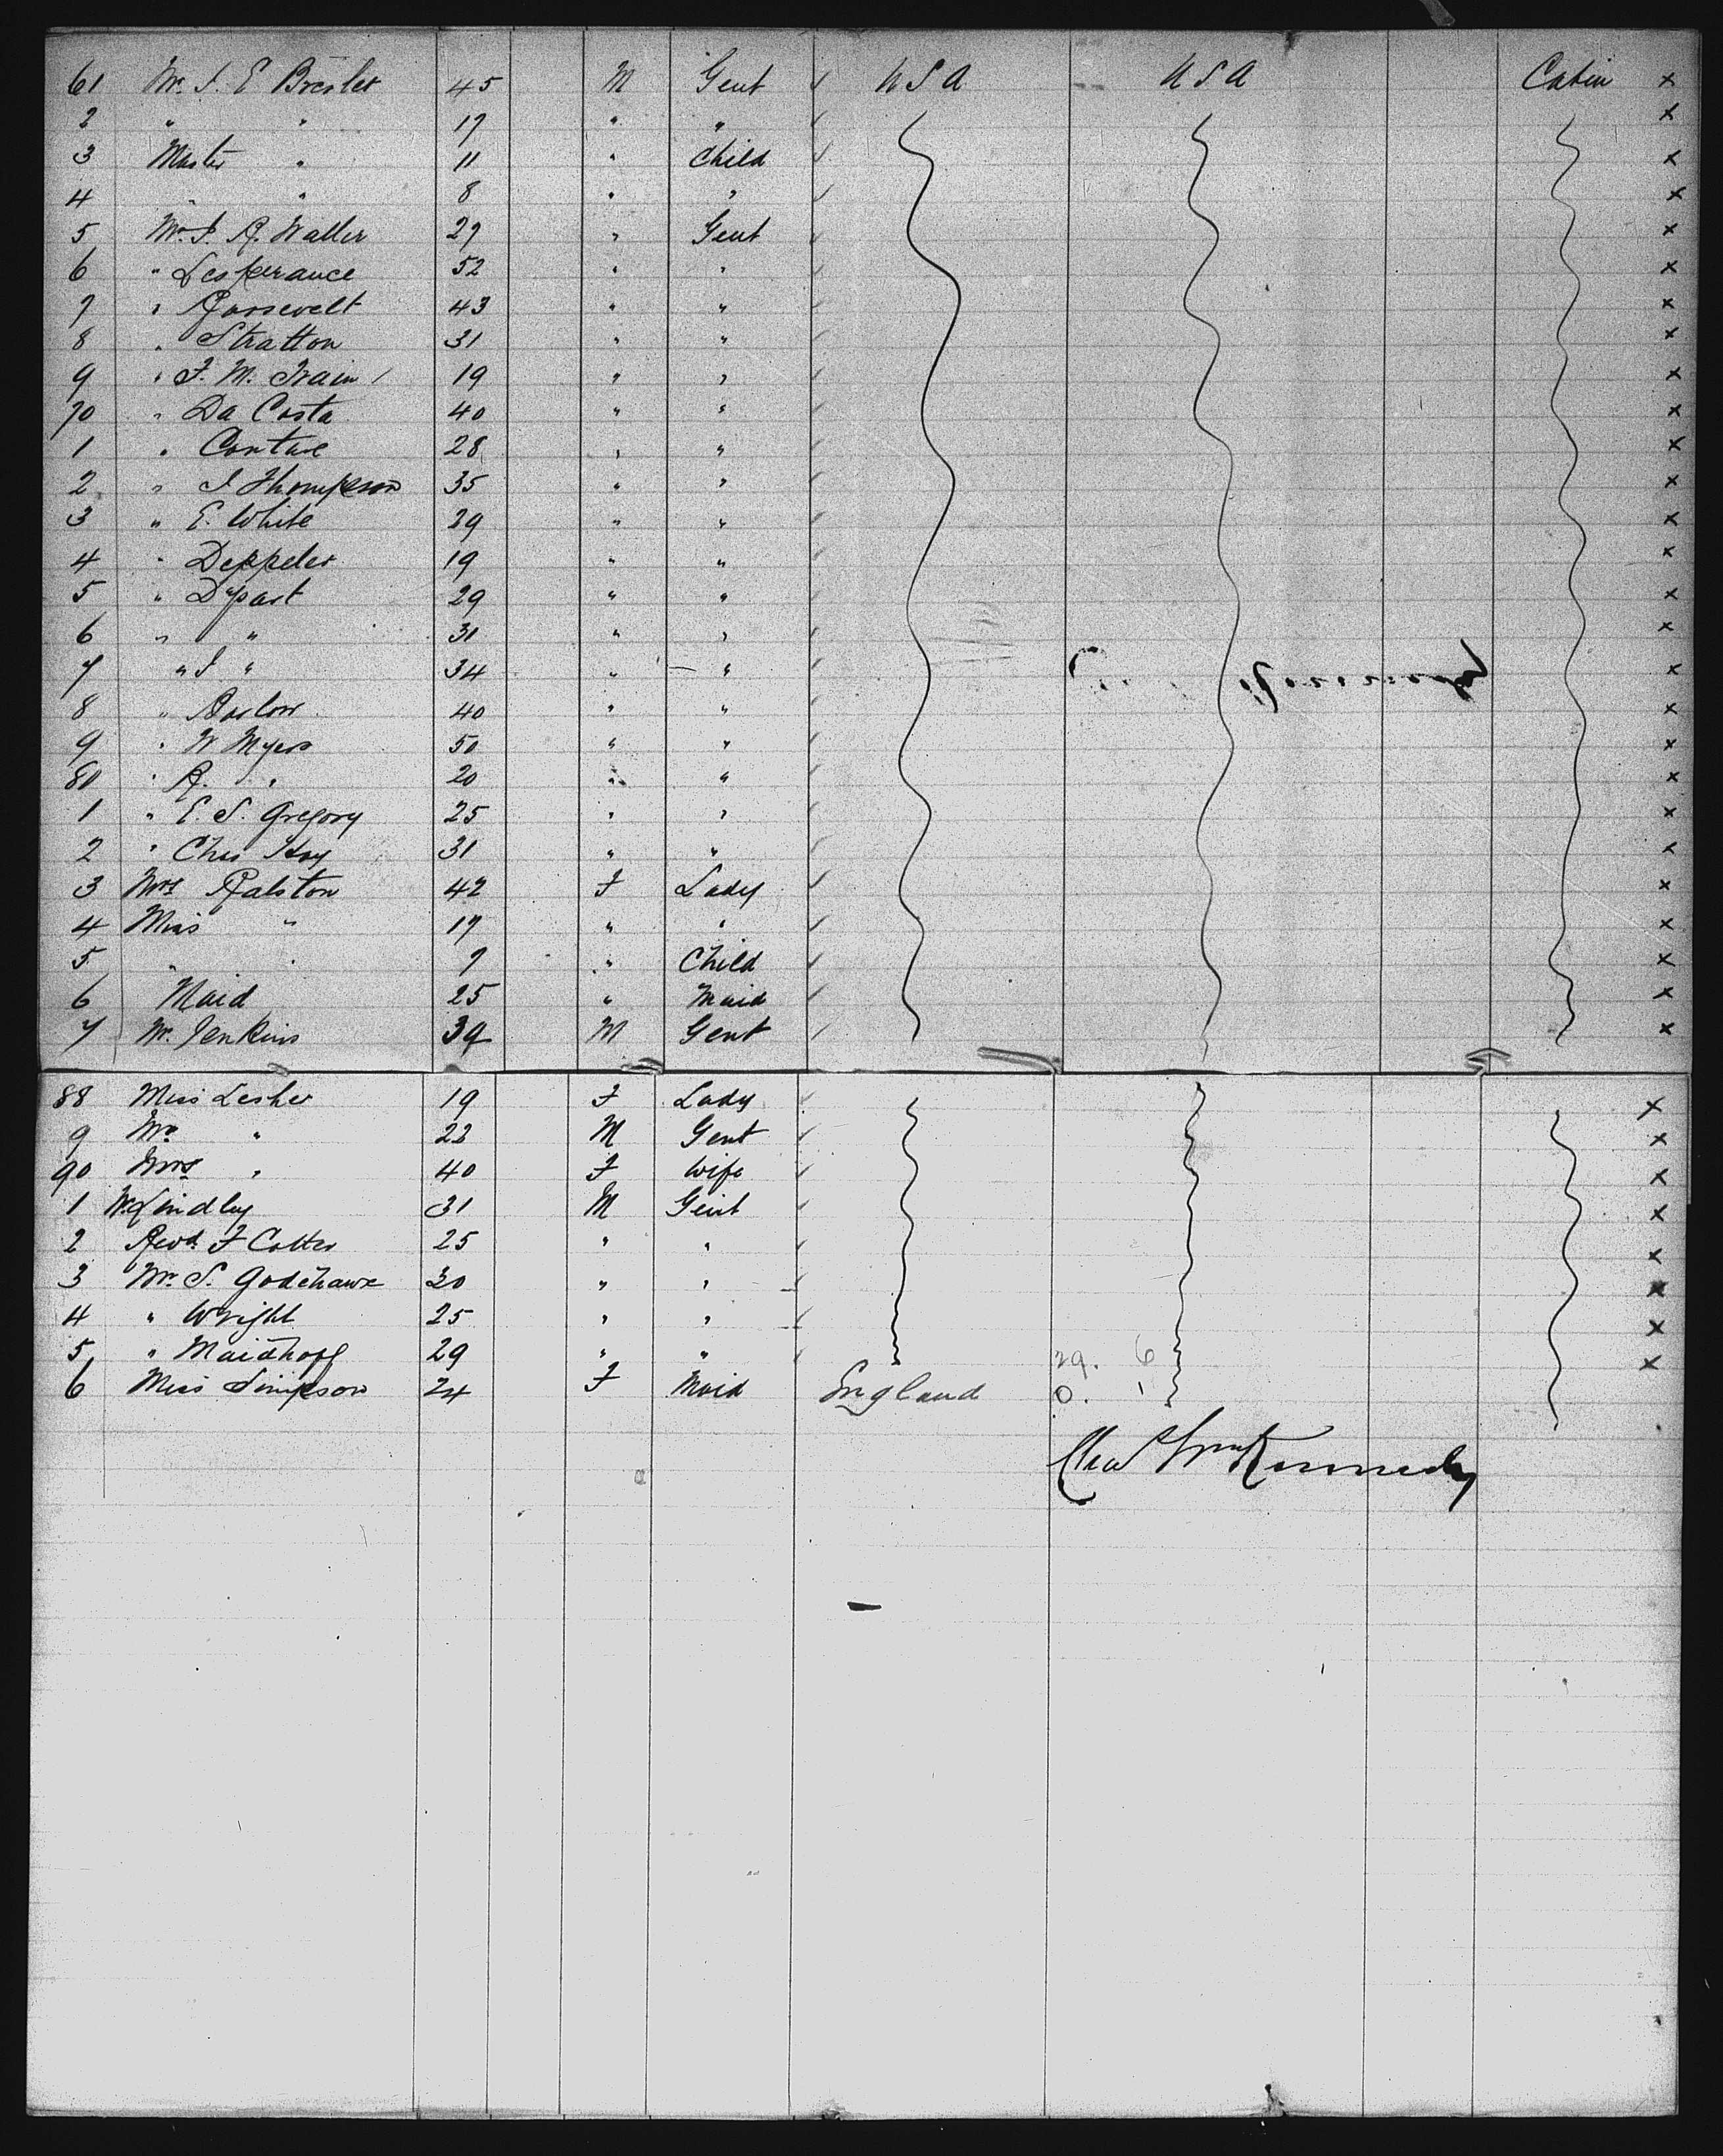 61 Mr. J. E Bresler 45 M Gent U S A U S A Cabin x
2 " " 17 " " x
3 Master " 11 " Child x
4 " " 8 " " x
5 Mr. J. R. Waller 27 " Gent x
6 " Lesperance 52 " " x
7 " Roosevelt 43 " " x
8 " Stratton 31 " " x
9 " F. M. Train 19 " " x
70 " Da Costa 40 " " x
1 " 28 " " x
2 " J Thompson 35 " " x
3 " E. White 29 " " x
4 " Deppeler 19 " " x
5 " 29 " " x
6 " " 31 " " x
7 " J " 34 " " x
8 " Barlow 40 " " x
9 " W Myers 50 " " x
80 " R. " 20 " " x
1 " E. S. Gregory 25 " " x
2 " Chas Hoy 31 " " x
3 Mrs Ralston 42 F Lady x
4 Miss " 17 " " x
5 " " 7 " Child x
6 Maid 25 " Maid x
7 Mr. Jenkins 39 M Gent x
88 Miss Lesher 19 F Lady x
9 Mr " 22 M Gent x
90 Mrs " 40 F Wife x
1 Mr Lindley 31 M Gent x
2 Revd. F Cotter 25 " " x
3 Mr. S. Godchaux 30 " " x
4 " Wright 25 " " x
5 " Maidhoff 29 " " 29. 6 x
6 Miss Simpson 24 F Maid England 0. 1
Chas Wm Kennedy